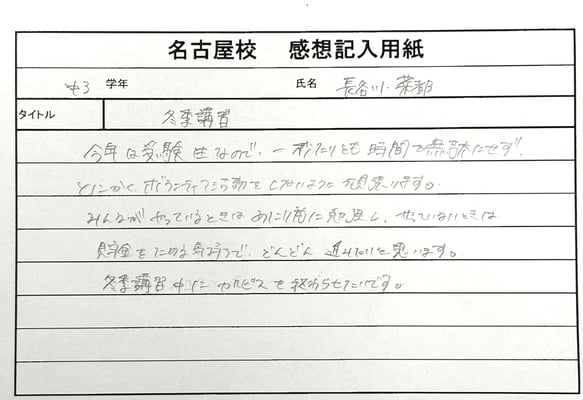 名古屋校 感想記入用紙
中3 学年 氏名 長谷川 菜都
タイトル 冬季講習
今年は受験生なので、一秒たりとも時間を無駄にせず、
とにかく ボランティア活動をしないように頑張ります。
みんながやっているときはあたり前に勉強し、やっていないときは
貯金をためる気持ちで、どんどん進めたいと思います。
冬季講習中に カルピスを終わらせたいです。